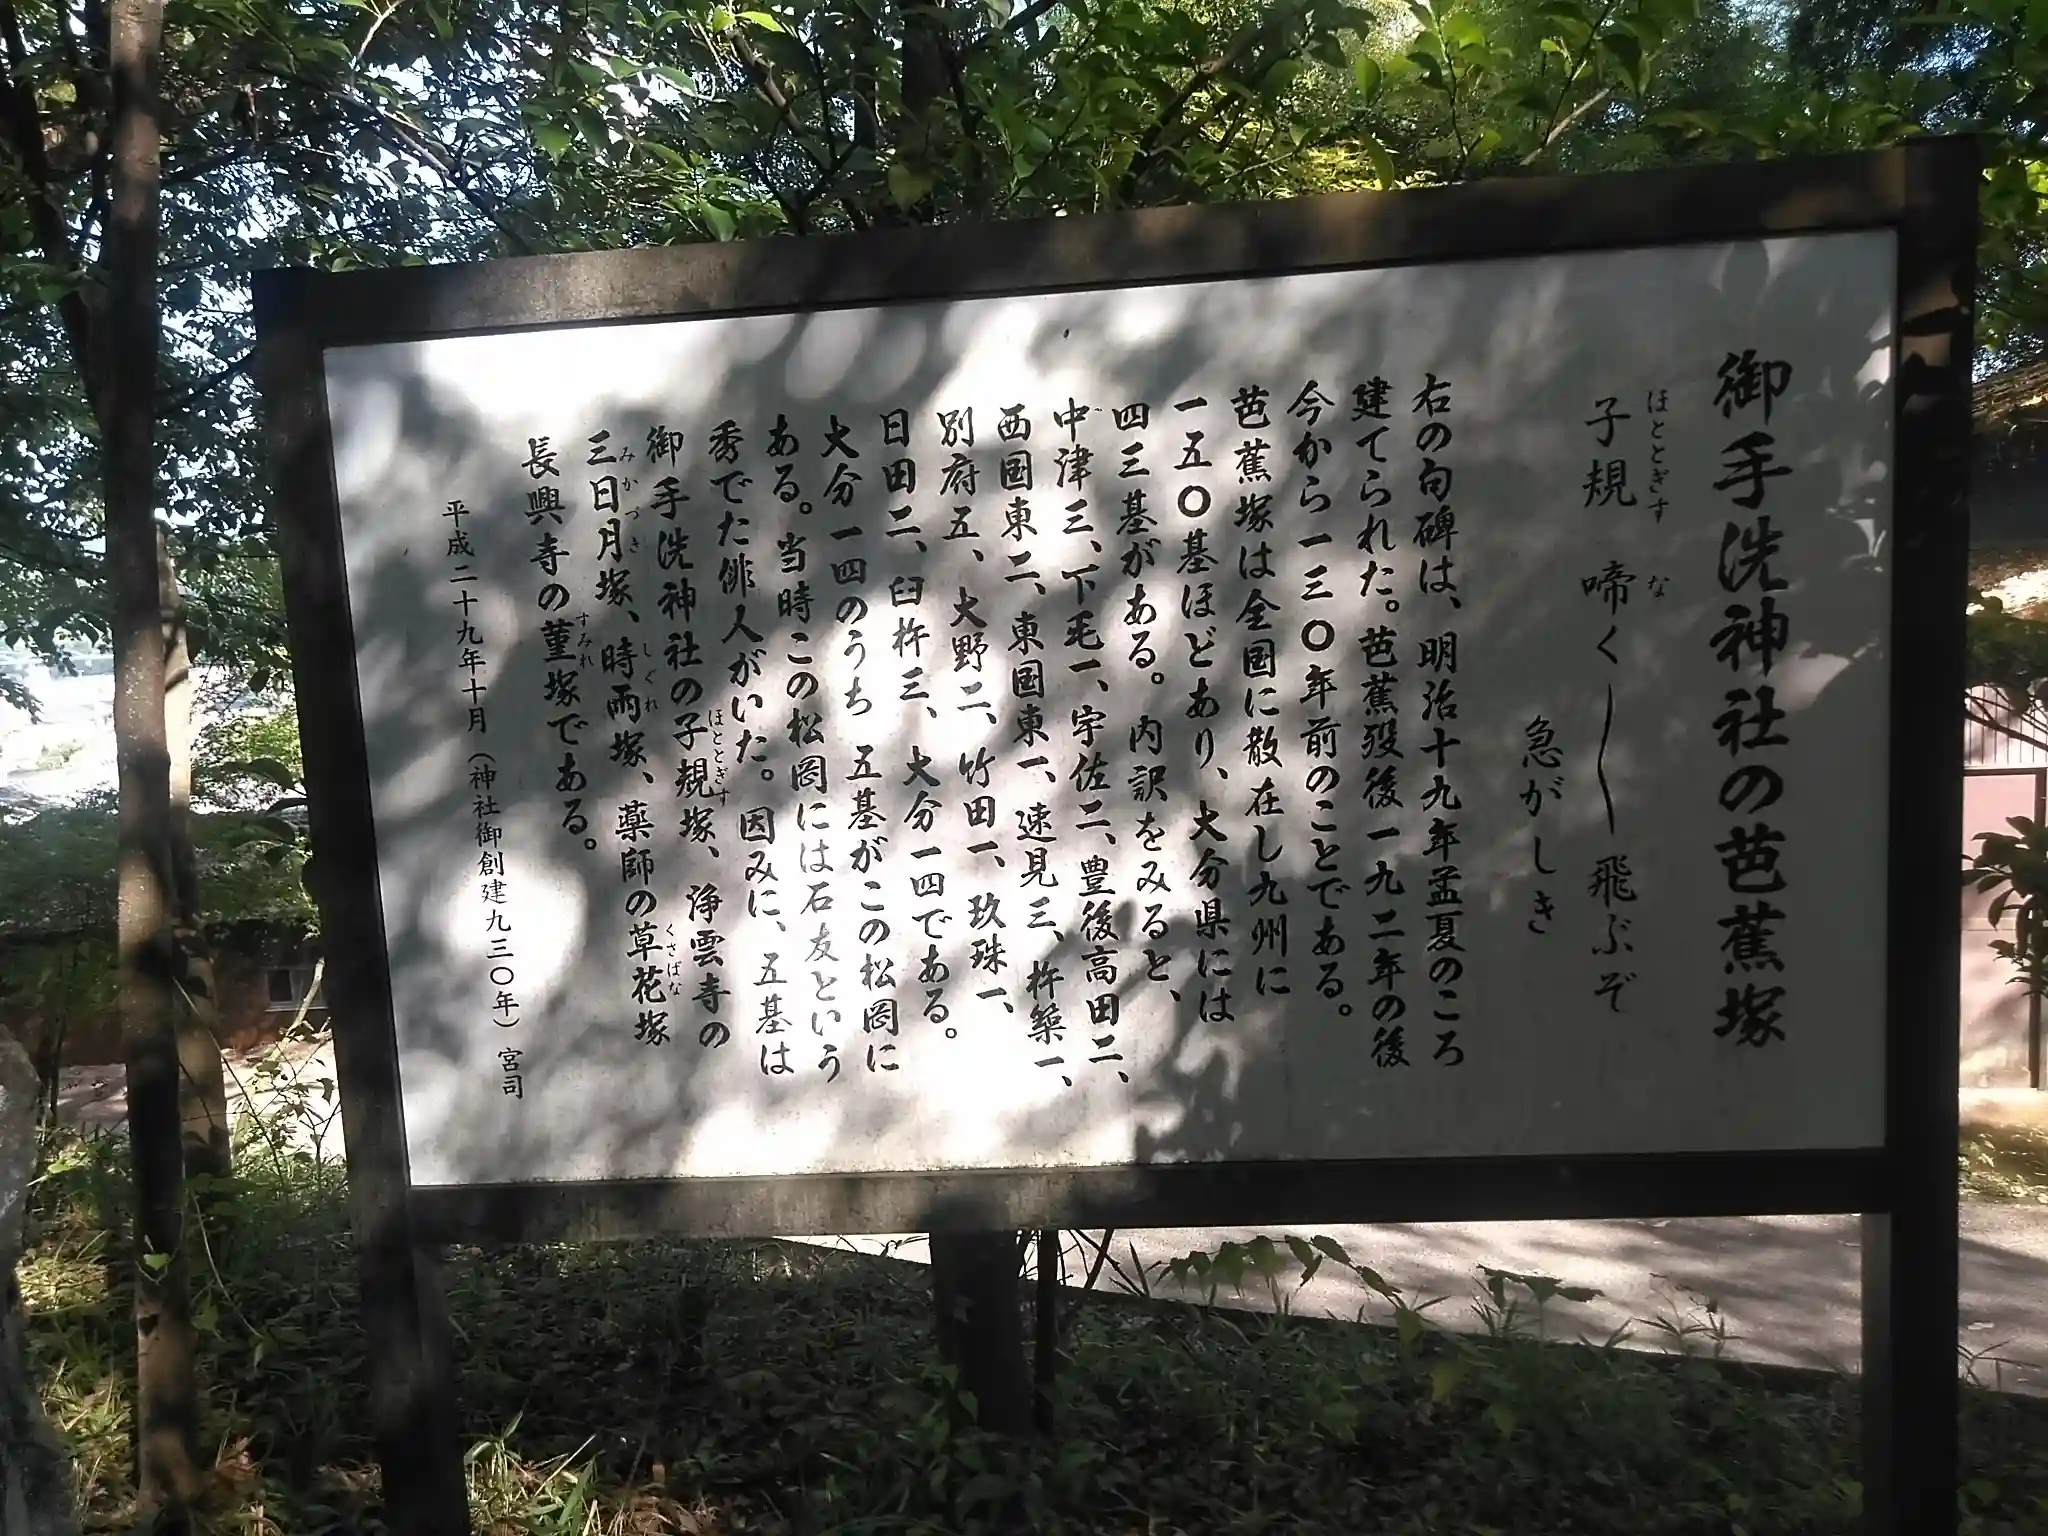 御手洗神社の芭蕉塚
子規　啼く〳〵飛ぶぞ
ほととぎす　な
急がしき
右の句碑は、明治十九年孟夏のころ
建てられた。芭蕉歿後一九二年の後
今から一三〇年前のことである。
芭蕉塚は全国に散在し九州に
一五〇基ほどあり、大分県には
四三基がある。内訳をみると、
中津三、下毛一、宇佐二、豊後高田二、
西国東二、東国東一、速見三、杵築一、
別府五、大野二、竹田一、玖珠一、
日田二、臼杵三、大分一四である。
大分一四のうち　五基がこの松岡に
ある。当時この松岡には石友という
秀でた俳人がいた。因みに、五基は
御手洗神社の子規塚、浄雲寺の
ほととぎす
三日月塚、時雨塚、薬師の草花塚
みかづき　しぐれ　くさばな
長興寺の菫塚である。
すみれ
平成二十九年十月（神社御創建九三〇年）宮司